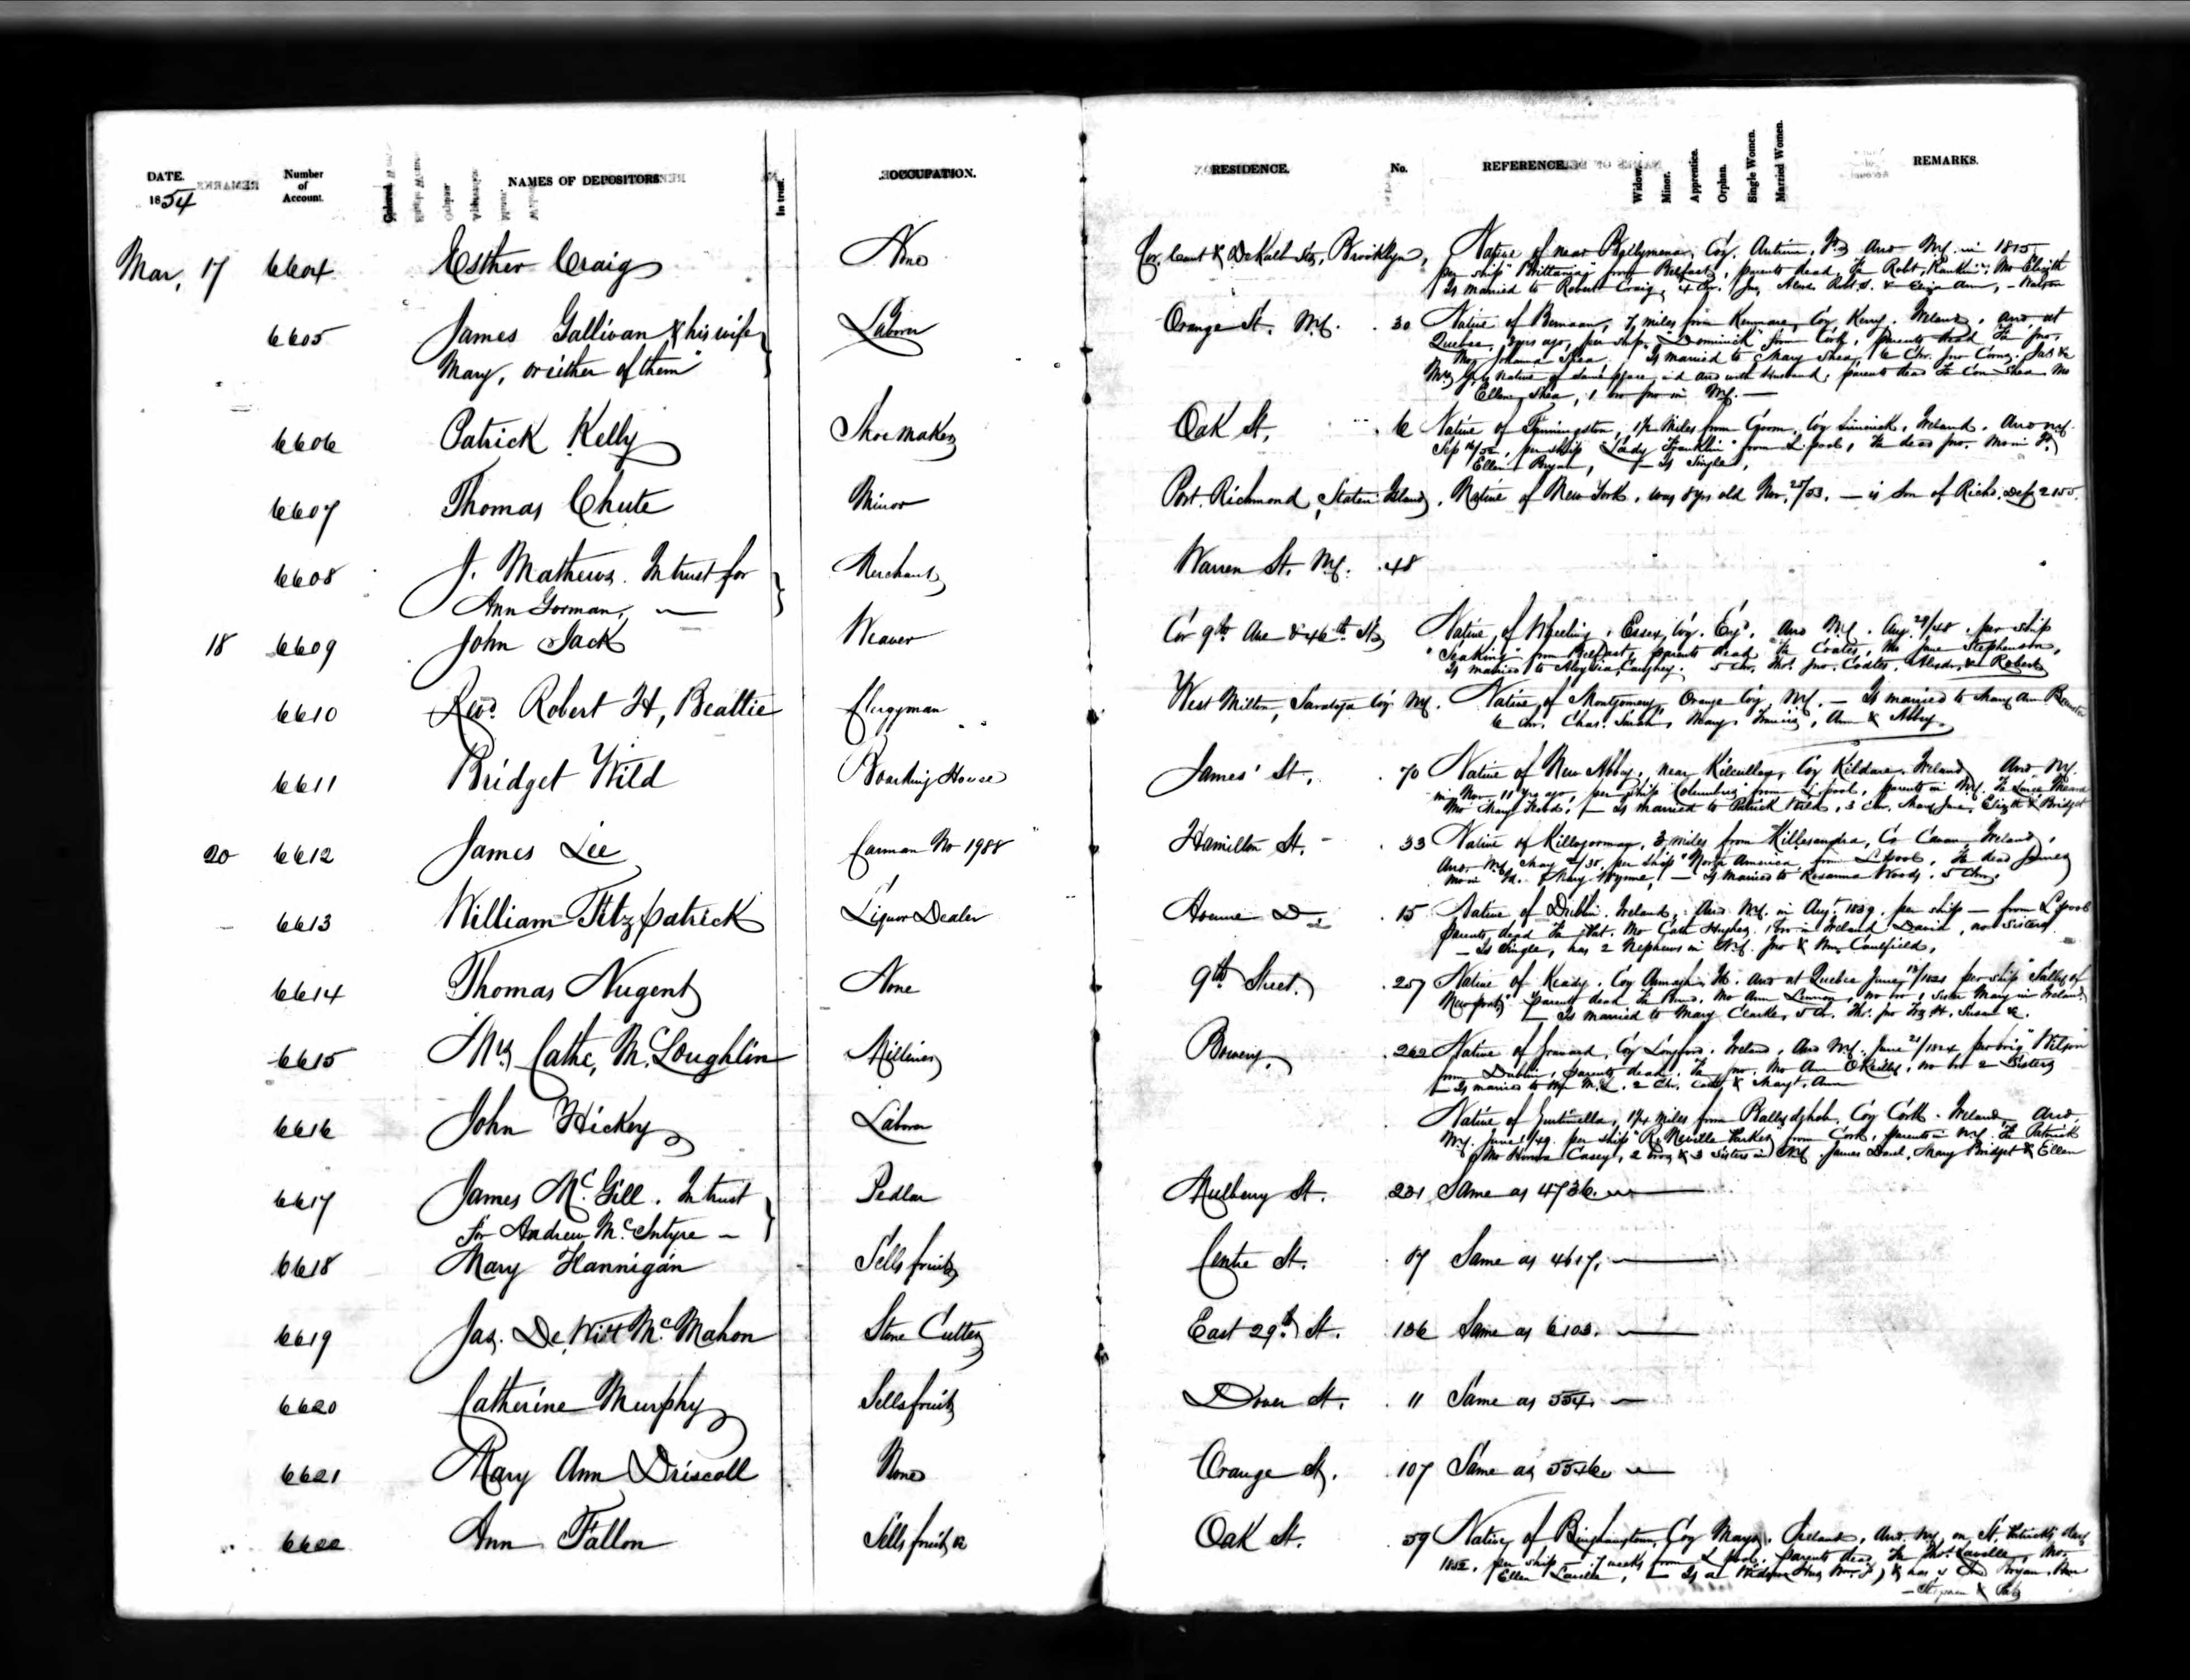 DATE. Number of Account. NAMES OF DEPOSITORS In trust. OCCUPATION. RESIDENCE. No. REFERENCE. Widow. Minor. Apprentice. Orphan. Single Women. Married Women. REMARKS.
1854
Mar, 17 6604 Esther Craig None Cor. & DeKalb Sts, Brooklyn, Native of near Ballymena, Coy. Antrim, Arrd N.Y. in 1815
per ship "Brittania" from Belfast, parents dead, Fa Robt, Rankin, Mo Elizth
Is married to Robert Craig, 4 Chr. & Eliza Ann, - Watson
6605 James Gallivan & his wife Laborer Orange St. N.Y. 30 Native of 7 miles from Kenmare, Coy Kerry. Ireland, arrd at
Mary, or either of them" Quebec, yrs ago, per ship "Dominick" from Cork, parents dead Fa Jno,
Mo, Johanna Shea. Is married to Mary Shea, 6 Chr. Jno
Mary native of same place and arrd with Husband; parents dead Fa Con Shea Mo
Ellen Shea, 1 bro Jno in N.Y. —
6606 Patrick Kelly Shoemaker Oak St. 6 Native of miles from Croom, Coy Limerick, Ireland. Arrd N.Y.
Sep per ship "Lady Franklin" from L.pool, Fa dead Jno. Mo in
Ellen Bryan, — Is Single,
6607 Thomas Chute Minor Port Richmond, Staten Island, Native of New York, was 8 yrs old Nov. 25/53. — is Son of Richd. Dep 2155.
6608 J. Mathews. In trust for Merchant Warren St. N.Y. 48
Ann Gorman, —
18 6609 John Jack Weaver Cor 9th Ave & 46th St Native of Essex, Coy. Engd. Arrd N.Y. Aug. 29/48. per ship
"Seaking" from Belfast, parents dead Fa Coates, Mo Jane Stephenson,
Is married to Caughey. 5 chr. Thos. Jno. Coates, Alexdr. & Robert
6610 Revd. Robert H, Beattie Clergyman West Milton, Saratoga Coy. N.Y. Native of Montgomery, Orange Coy, N.Y. — Is married to Mary Ann
6 Chr. Chas. Sarah, Mary, Ann & Abby
6611 Bridget Wild Boarding House James' St. 70 Native of New Abbey, near Kilcullen, Coy Kildare. Ireland Arrd. N.Y.
in Nov 11 yrs ago, per ship "Columbus" from L.pool, parents in N.Y.
Mo Mary — Is married to Patrick Wild, 3 chr. Mary Jane, Elizth & Bridget
20 6612 James Lee Carman No 1988 Hamilton St. 33 Native of 3 miles from Killesandra, Co Cavan, Ireland,
Arrd N.Y. May per ship "North America" from L.pool, Fa dead James
Mo in Mary Wynne, — Is married to Rosanna Woods. 5 Chr.
6613 William Fitzpatrick Liquor Dealer 15 Native of Dublin. Ireland, Arrd N.Y. in Augt. 1839. per ship — from L'pool
parents dead Fa Pat. Mo Cath Hughes. 1 bro in Ireland David, no Sisters
— Is Single, has 2 Nephews in N.Y. Jno & Wm Caulfield,
6614 Thomas Nugent None 9th Street. 257 Native of Keady, Coy Armagh, Arrd at Quebec June per ship "Sally of
Newport" parents dead Mo Ann Lennon, no bro 1 Sister Mary in Ireland
— Is married to Mary Clarke, 5 Chr. Thos. Jno Susan &c.
6615 Mrs Cathe, McLoughlin Milliner Bowery 262 Native of Granard, Coy Longford. Ireland, Arrd N.Y. June 21/1824 per brig "Wilson"
from Dublin, parents dead. Fa Jno. Mo Ann OReilly, no bro 2 Sisters
— Is married to 2 Chr. Cathe & Margt. Ann
6616 John Hickey Laborer Native of 1 1/4 miles from Ballydehob, Coy Cork. Ireland, Arrd,
N.Y. June per ship "R. Neville Parker" from Cork, parents in N.Y. Fa Patrick
Mo Honora Casey, 2 bros & 3 Sisters in N.Y. James Danl, Mary Bridget & Ellen
6617 James McGill. In trust Pedlar Mulberry St. 231 Same as 4736.
For Andrew McIntyre —
6618 Mary Hannigan Sells fruit Centre St. 87 Same as 4617.
6619 Jas. DeWitt McMahon Stone Cutter East 29th St. 136 Same as 6103.
6620 Catherine Murphy Sells fruit Dover St. 11 Same as 554. —
6621 Mary Ann Driscoll None Orange St. 107 Same as 5546.
6622 Ann Fallon Sells fruit &c Oak St. 59 Native of Binghamstown, Coy Mayo. Ireland, Arrd. N.Y. on St. Patrick's day
1852. per ship — 7 weeks from L pool. parents dead, Fa Thos. Lavelle, Mo.
Ellen — Is a Widow & has 4 Chr Bryan,